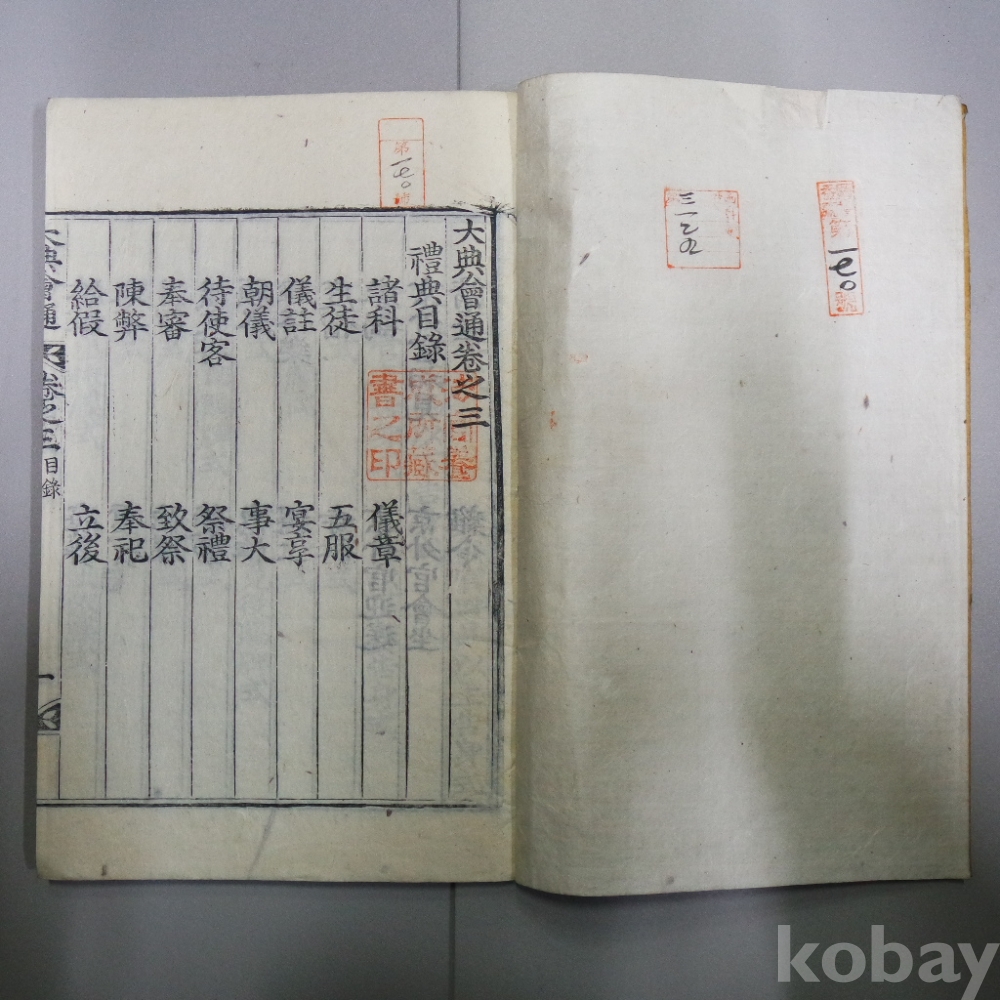 大典會通卷之三
禮典目錄
諸科 儀章
生徒 五服
儀註 宴享
朝儀 事大
待使客 祭禮
奉審 致祭
陳弊 奉祀
給假 立後
大典會通 卷之三 目錄 一
書之印
第一七〇號
三一二九
第一七〇號
kobay